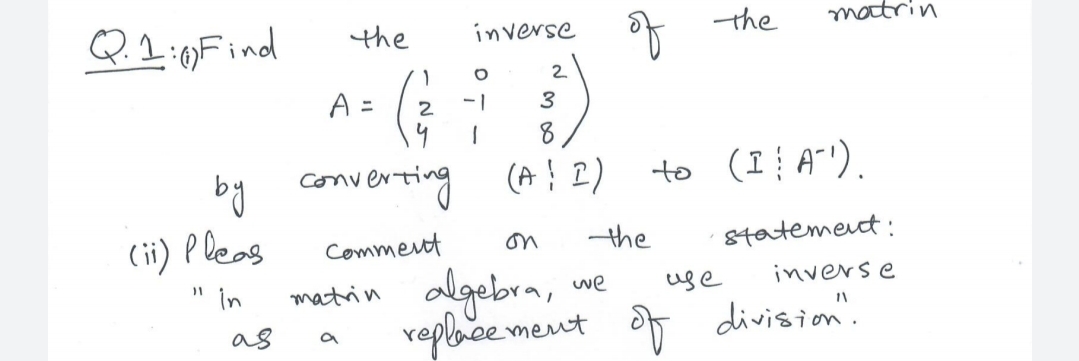 Q.1:(i) Find the inverse of the matrin
A = ( 1 0 2
2 -1 3
4 1 8 )
by converting (A ¦ I) to (I ¦ A⁻¹).
(ii) Pleas comment on the statement:
" in matrin algebra, we use inverse
as a replacement of division".